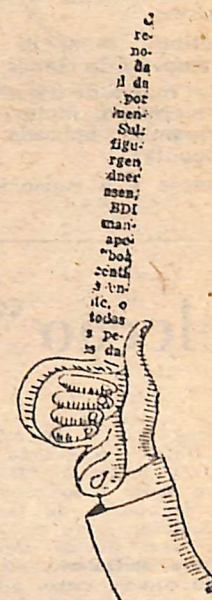 re
no-
da
il da
por
uen-
Sul-
figu-
rgen
dner
nsen;
BDI
man-
apo
"bo
centr
s en-
ite, o
todas
s pe-
da